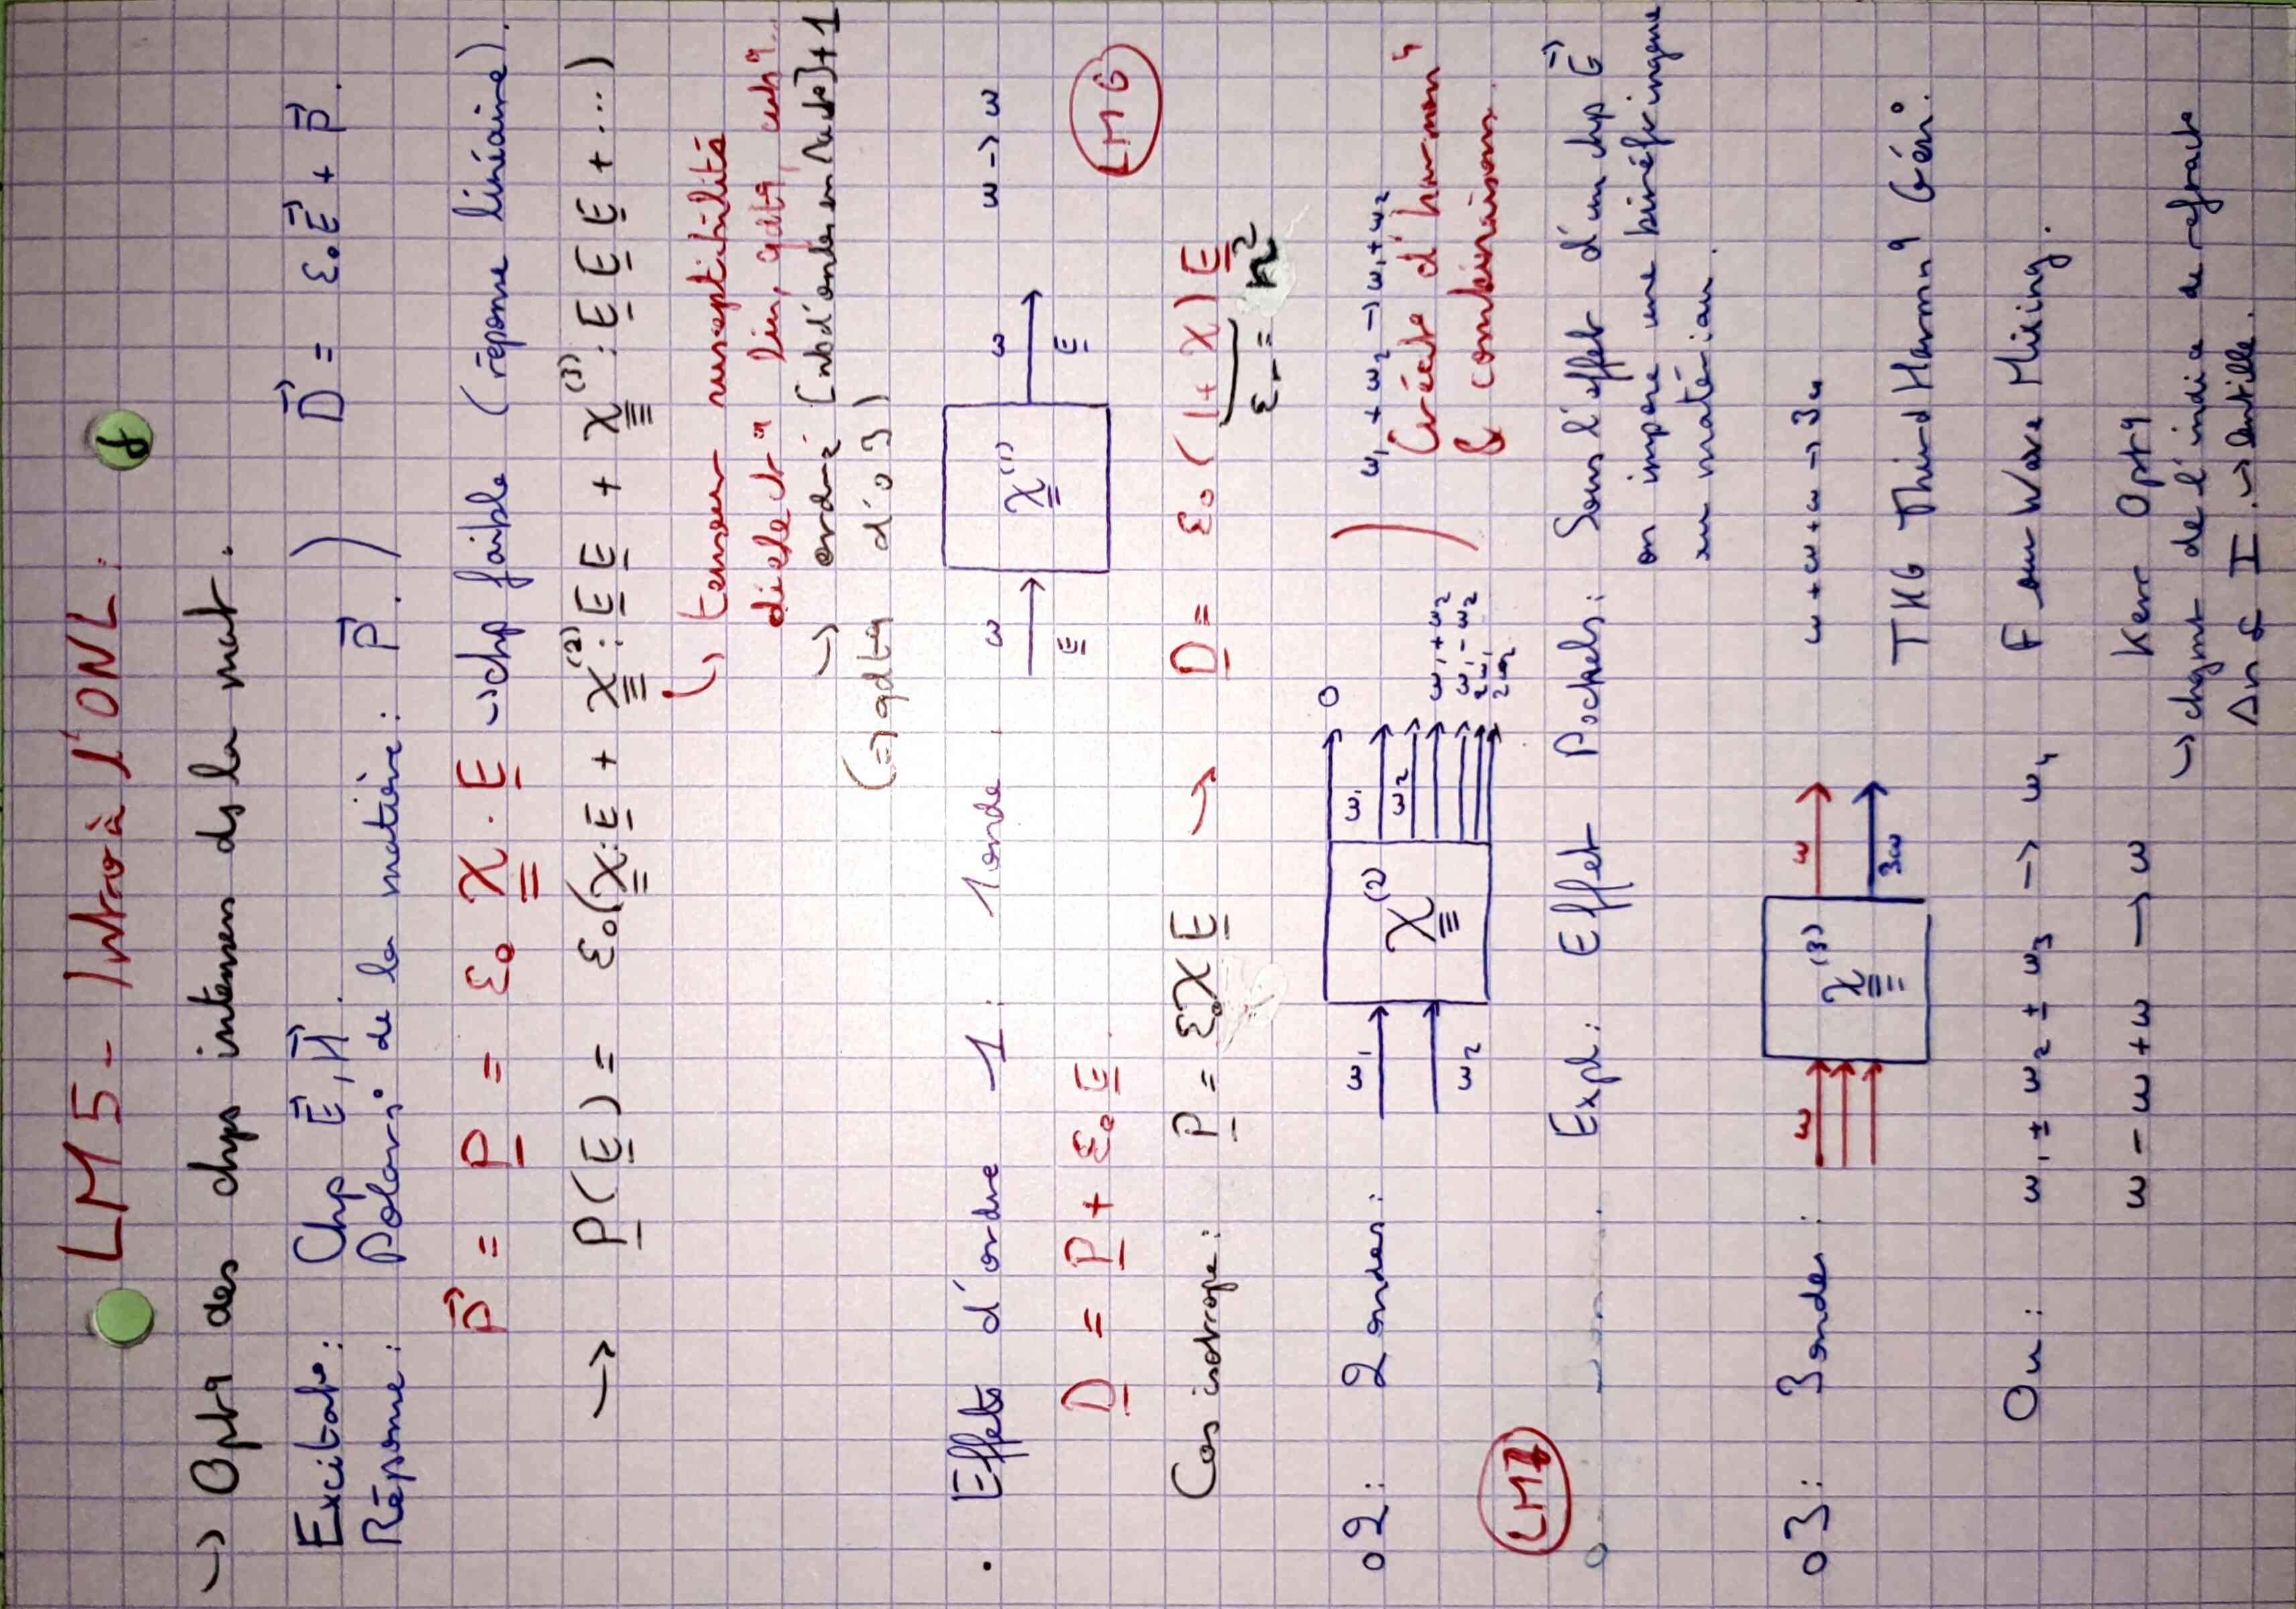 LM 5 - Intro à l'ONL :
→ Optq des chps intenses ds la mat.
Excitat° : Chp E⃗, H⃗.
Réponse : Polaris° de la matière : P⃗. ) D⃗ = ε₀E⃗ + P⃗.
P⃗ = P = ε₀ χ . E → chp faible (réponse linéaire).
→ P(E) = ε₀(χ:E + χ⁽²⁾:E E + χ⁽³⁾:E E E + ...)
↳ tenseur susceptibilité
dielectrq lin, qdtq, cubq...
→ ordre [nb d'ondes en jeu]+1
(=> qdtq d'o3)
. Effets d'ordre 1 : 1 onde.
ω E
χ⁽¹⁾
ω E
ω → ω
D = P + ε₀E.
LM6
Cas isotrope : P = ε₀χE → D = ε₀(1+χ)E
εr = n²
o2 : 2 ondes :
ω₁
ω₂
χ⁽²⁾
0
ω₁
ω₂
ω₁+ω₂
ω₁-ω₂
2ω₁
2ω₂
ω₁+ω₂ → ω₁+ω₂
Créat° d'harmonq
& combinaisons.
LM7
Expl : Effet Pockels : Sous l'effet d'un chp E⃗
on impose une biréfringence
au matériau.
o3 : 3 ondes :
ω
χ⁽³⁾
ω
3ω
ω+ω+ω → 3ω
THG Third Harmnq Génr°.
Ou : ω₁ ± ω₂ ± ω₃ → ω₄ Four Wave Mixing.
ω - ω + ω → ω Kerr Optq
→ chgmt de l'indice de refract°
Δn α I. → lentille.